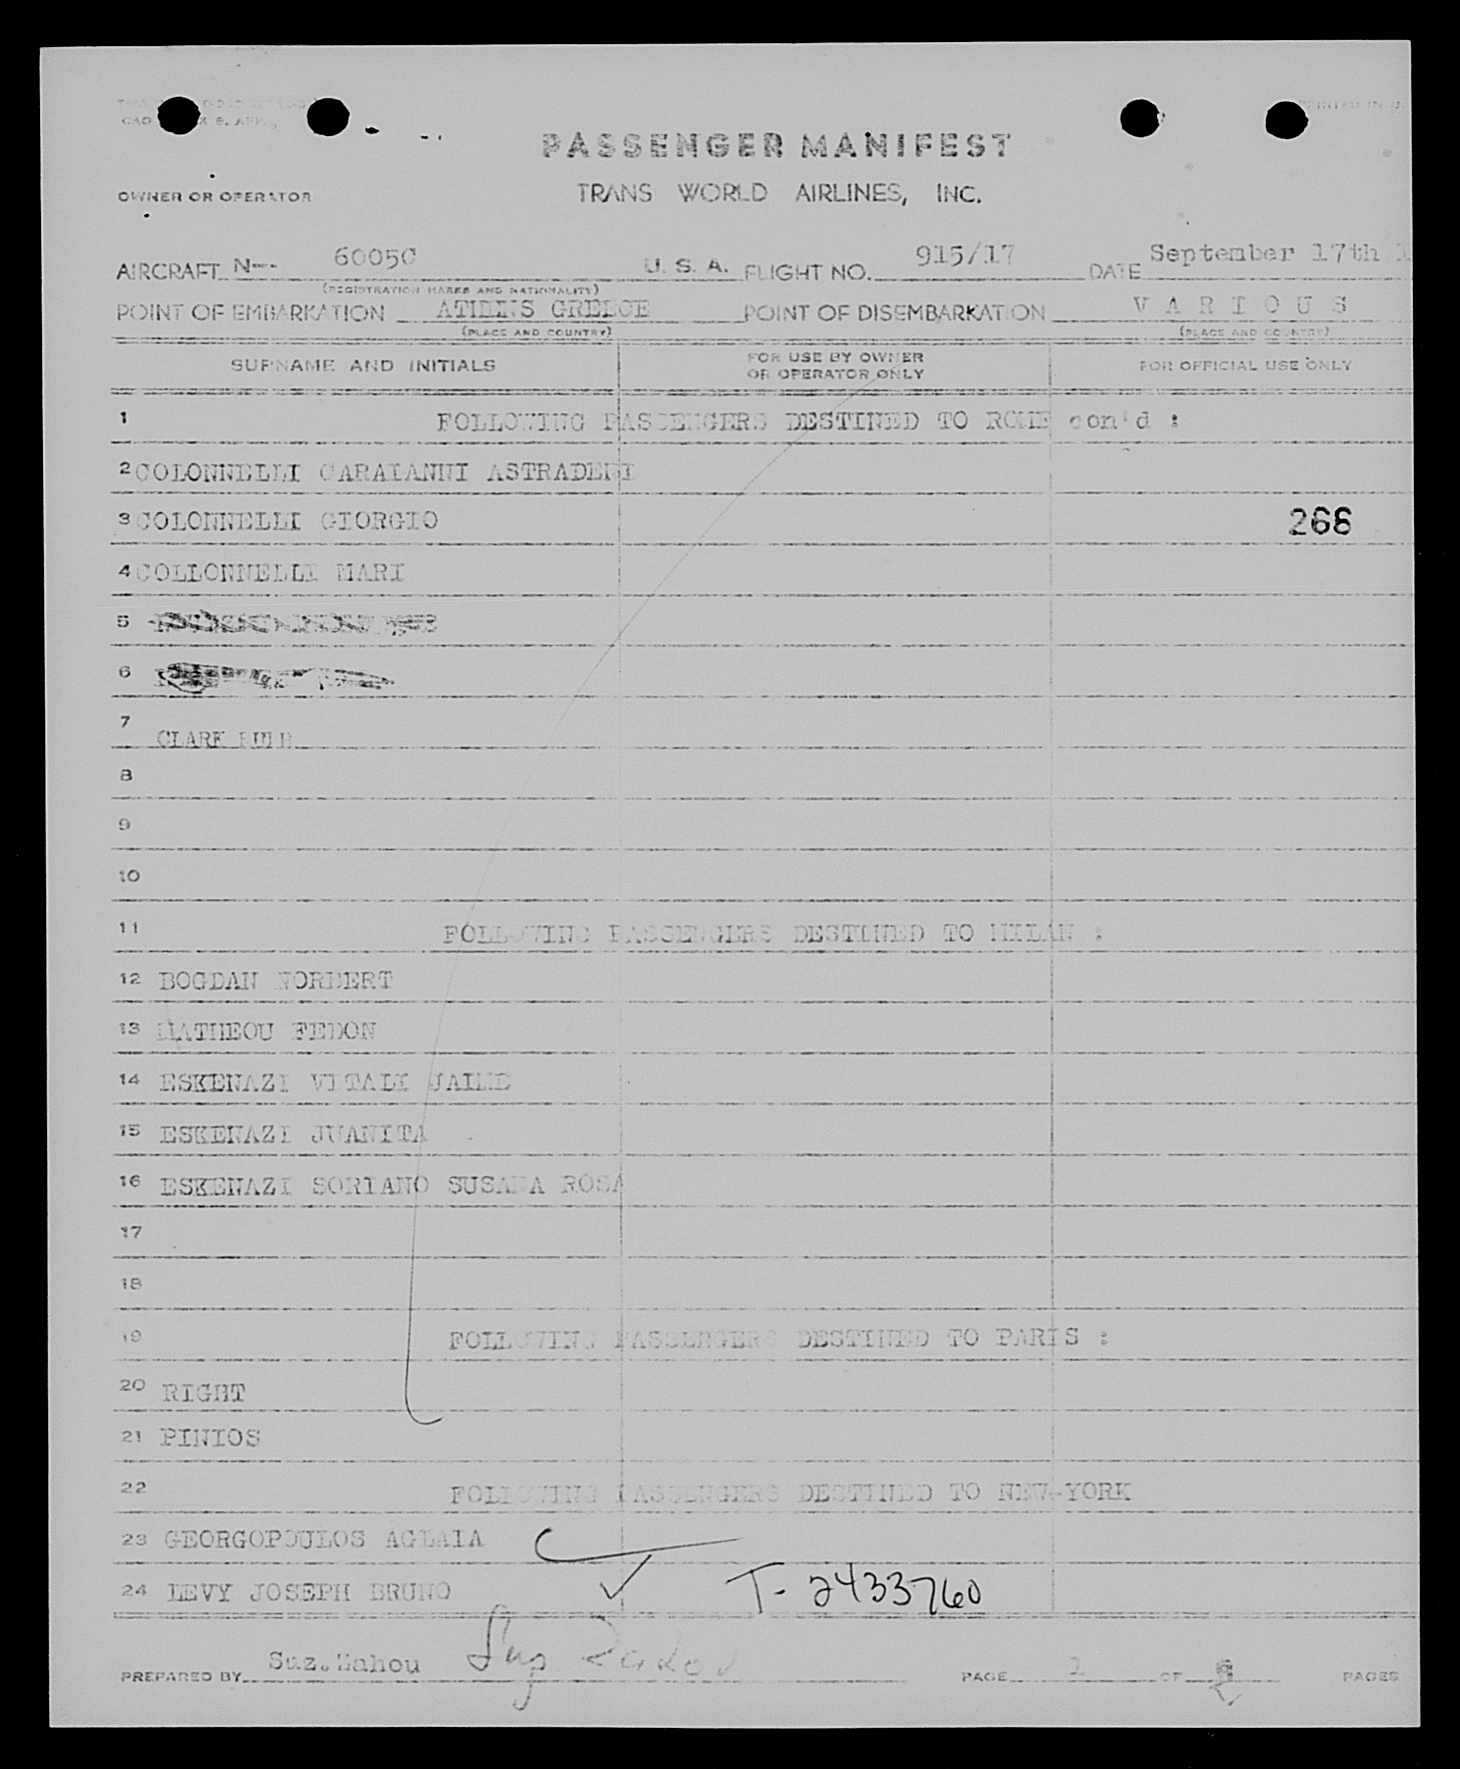 PASSENGER MANIFEST
OWNER OR OPERATOR TRANS WORLD AIRLINES, INC.
AIRCRAFT N-- 6005C U. S. A. FLIGHT NO. 915/17 DATE September 17th
(REGISTRATION MARKS AND NATIONALITY)
POINT OF EMBARKATION ATHENS GREECE POINT OF DISEMBARKATION V A R I O U S
(PLACE AND COUNTRY) (PLACE AND COUNTRY)
SURNAME AND INITIALS FOR USE BY OWNER OR OPERATOR ONLY FOR OFFICIAL USE ONLY
1 FOLLOWING PASSENGERS DESTINED TO ROME con'd :
2 COLONNELLI CARAIANNI
3 COLONNELLI GIORGIO 266
4 COLLONNELLI MARI
5
6
7 CLARK
8
9
10
11 FOLLOWING PASSENGERS DESTINED TO MILAN :
12 BOGDAN NORBERT
13 MATHEOU FEDON
14 ESKENAZI VITALI JAIME
15 ESKENAZI JUANITA
16 ESKENAZI SORIANO SUSANA ROSA
17
18
19 FOLLOWING PASSENGERS DESTINED TO PARIS :
20 RIGHT
21 PINIOS
22 FOLLOWING PASSENGERS DESTINED TO NEW-YORK
23 GEORGOPOULOS AGLAIA
24 LEVY JOSEPH BRUNO T- 2433760
PREPARED BY Suz.Zahou Suz Zahou PAGE OF PAGES